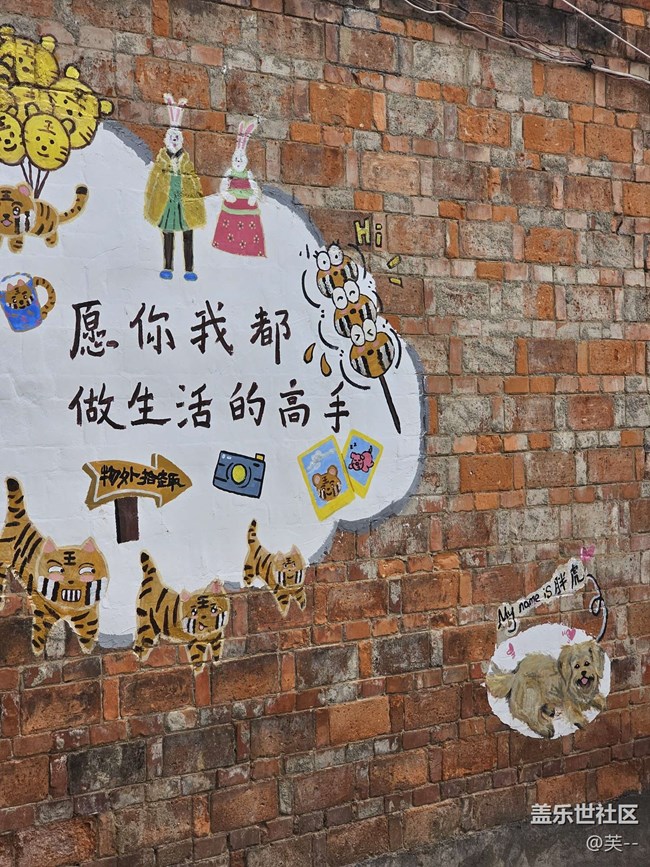 Hi
愿你我都
做生活的高手
物外拾
My name is 胖虎
盖乐世社区
@芙--